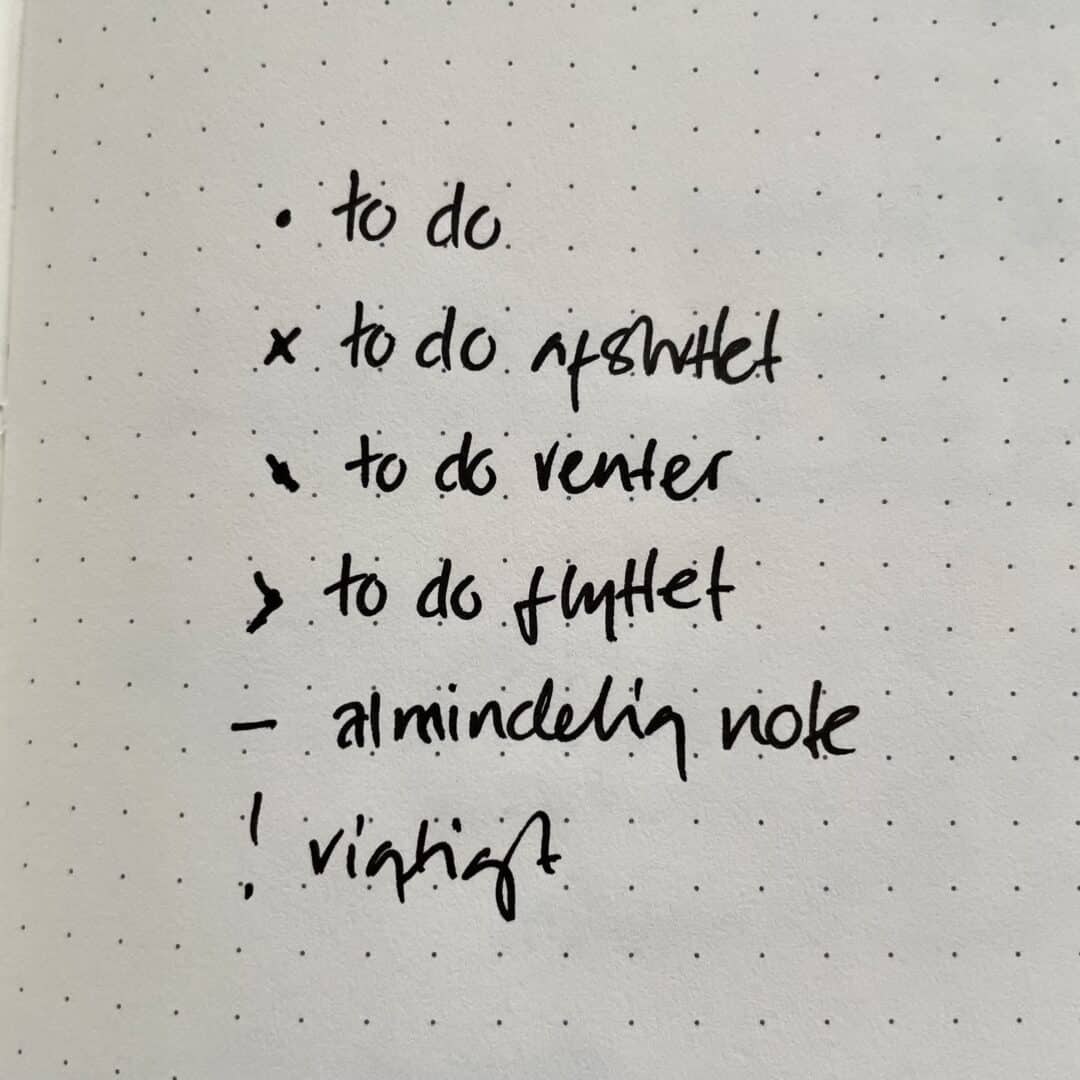 • to do
x to do afsluttet
\ to do venter
> to do flyttet
– almindelig note
! vigtigt